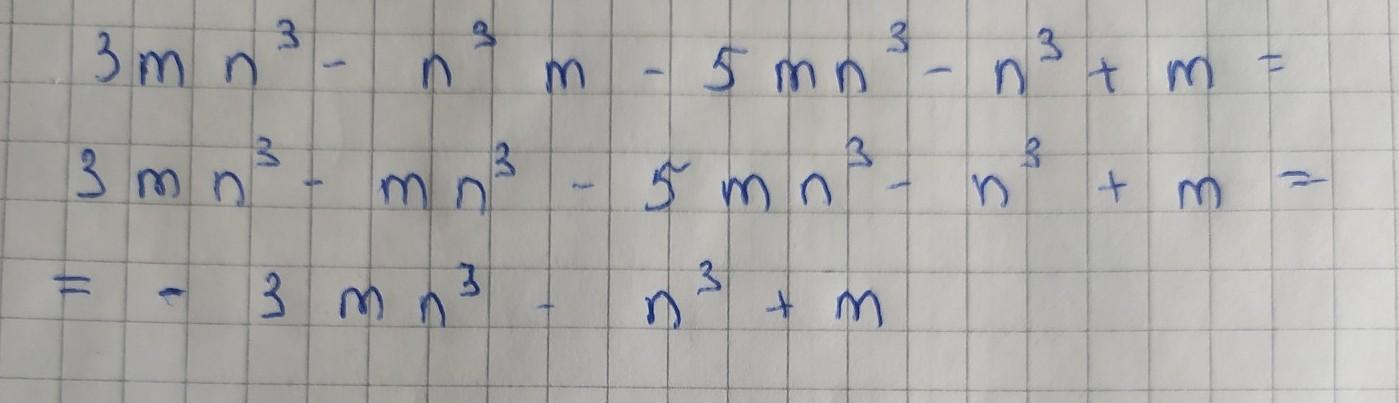 3mn³ - n³m - 5mn³ - n³ + m =
3mn³ - mn³ - 5mn³ - n³ + m =
= - 3mn³ - n³ + m